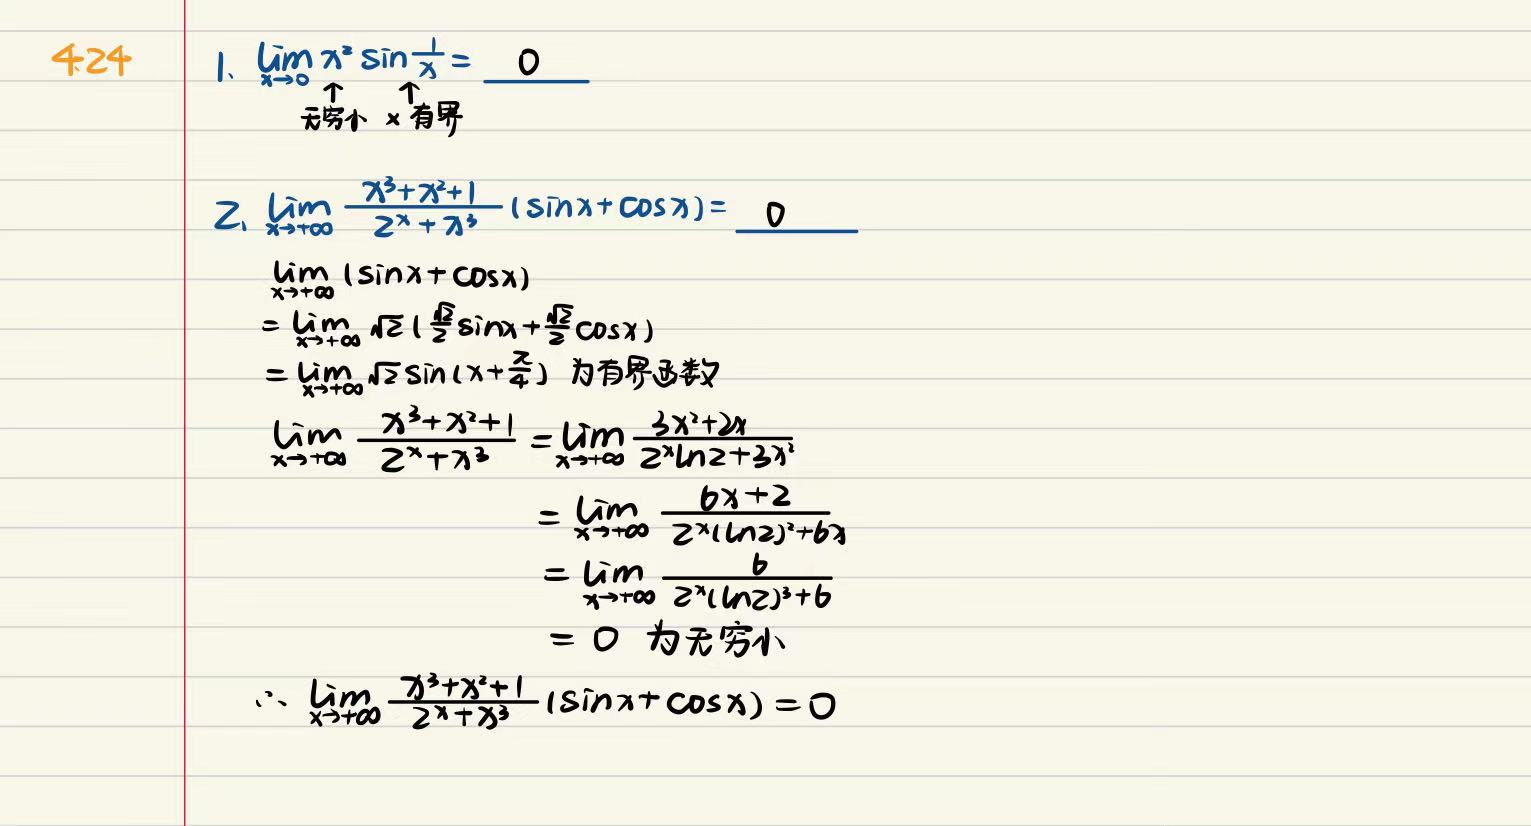 4.24
1、lim_{x→0} x² sin 1/x = 0
↑ ↑
无穷小 × 有界
2、lim_{x→+∞} (x³+x²+1)/(2ˣ+x³) (sinx+cosx) = 0
lim_{x→+∞} (sinx+cosx)
= lim_{x→+∞} √2 (√2/2 sinx + √2/2 cosx)
= lim_{x→+∞} √2 sin(x+π/4) 为有界函数
lim_{x→+∞} (x³+x²+1)/(2ˣ+x³) = lim_{x→+∞} (3x²+2x)/(2ˣln2+3x²)
= lim_{x→+∞} (6x+2)/(2ˣ(ln2)²+6x)
= lim_{x→+∞} 6/(2ˣ(ln2)³+6)
= 0 为无穷小
∴ lim_{x→+∞} (x³+x²+1)/(2ˣ+x³) (sinx+cosx) = 0